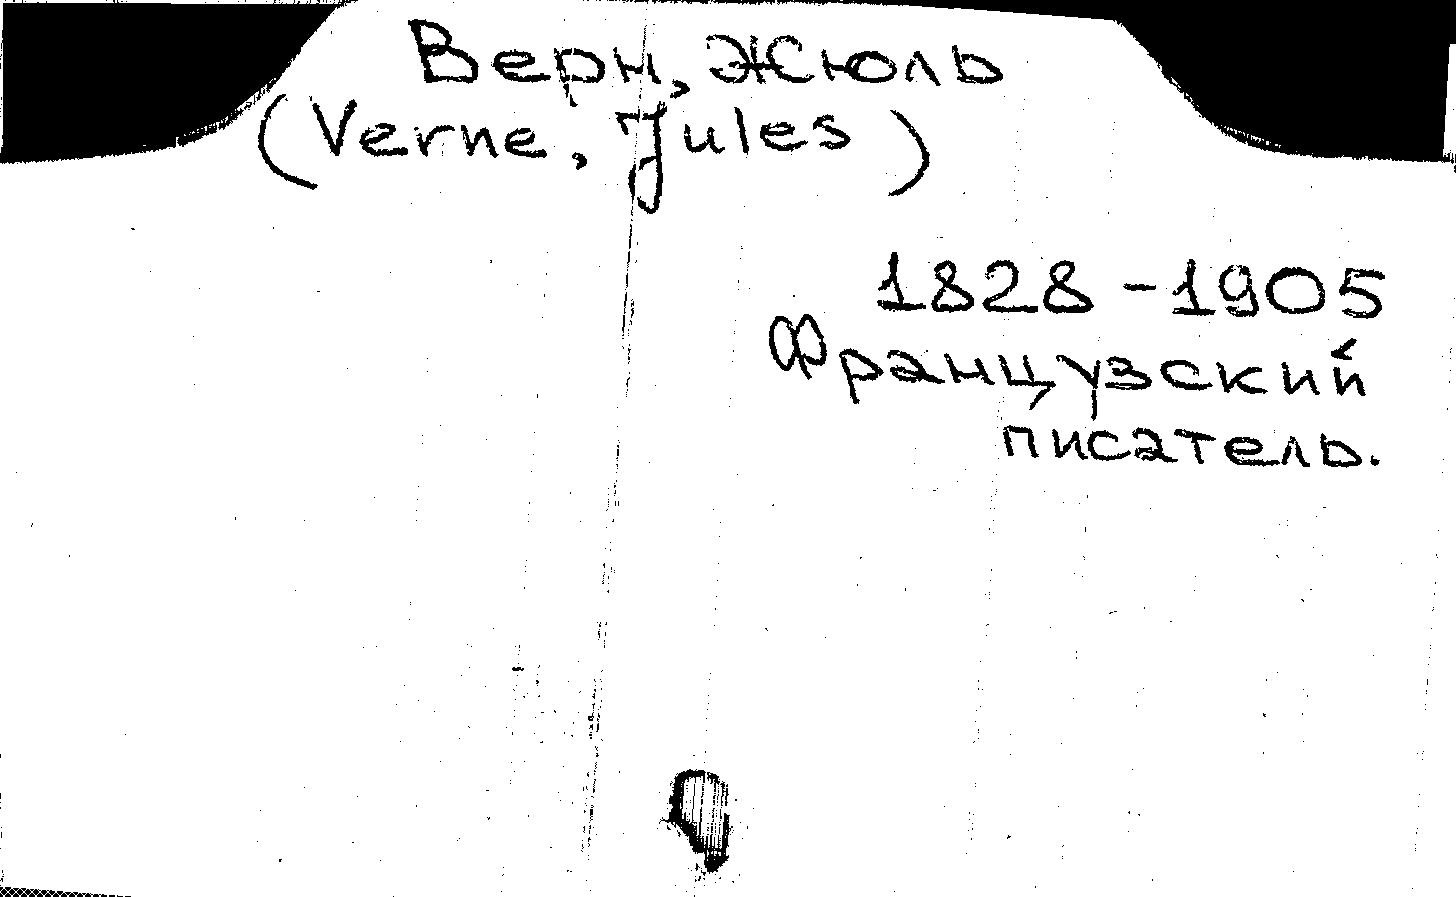 Верн, Жюль
(Verne, Jules)
1828-1905
Французский
писатель.